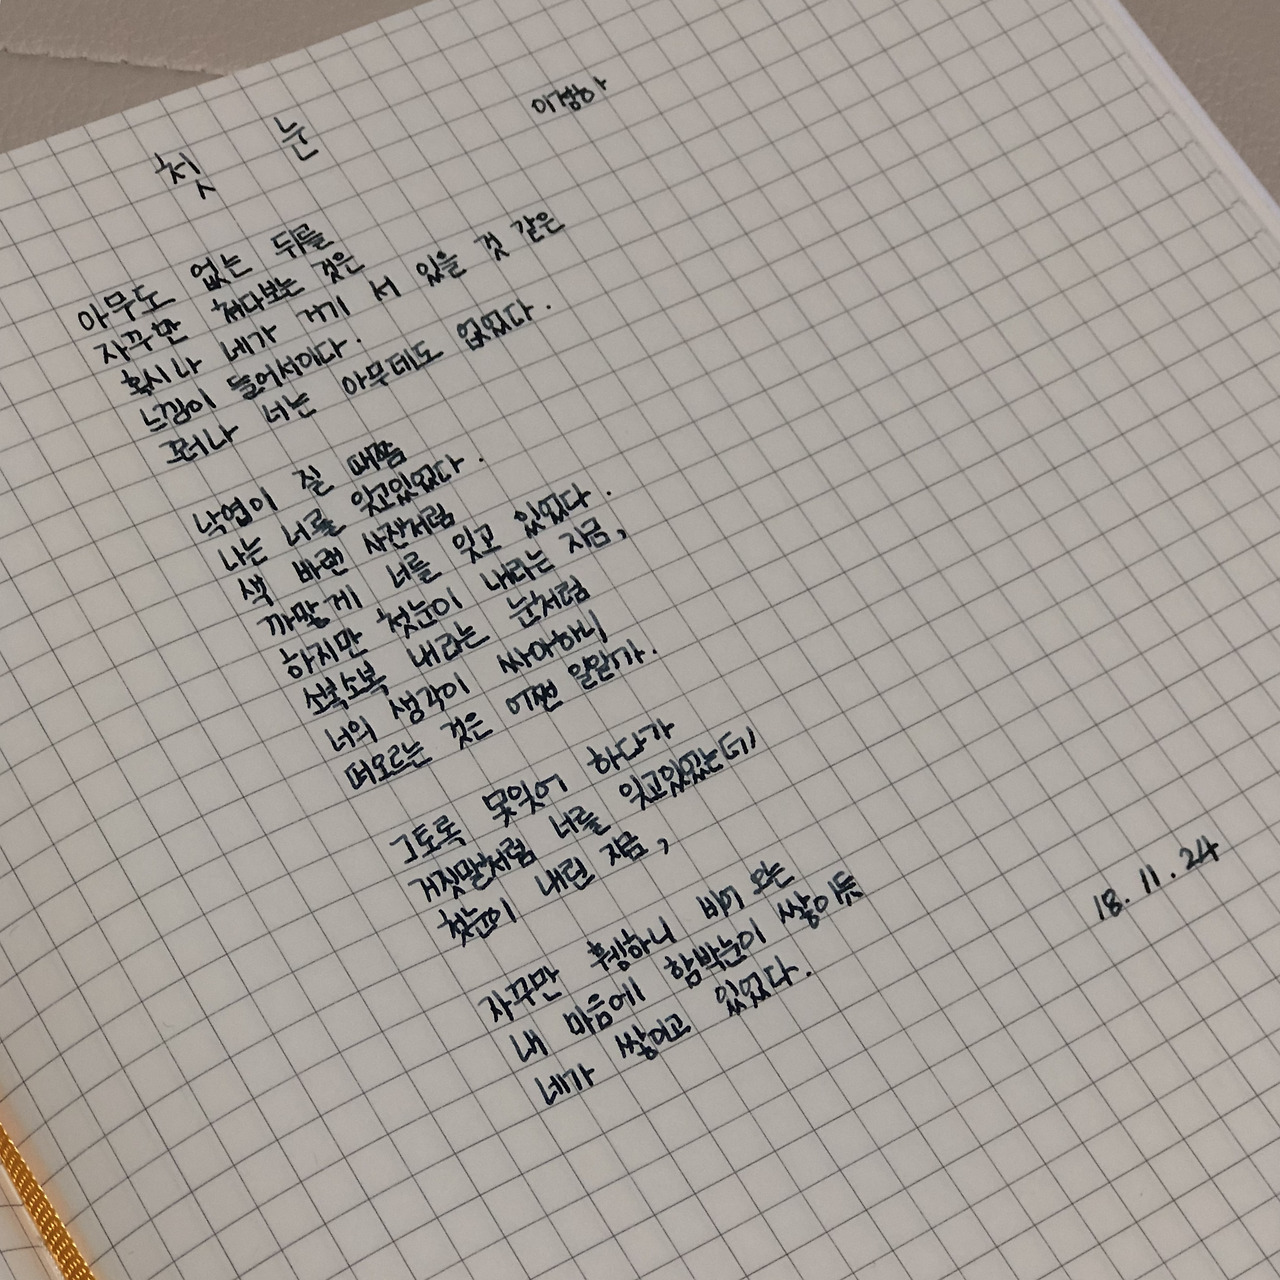 첫 눈
아무도 없는 뒤를
자꾸만 쳐다보는 것은
혹시나 네가 거기 서 있을 것 같은
느낌이 들어서이다.
그러나 너는 아무데도 없었다.
낙엽이 질 때쯤
나는 너를 잊고있었다.
색 바랜 사진처럼
까맣게 너를 잊고 있었다.
하지만 첫눈이 내리는 지금,
소복소복 내리는 눈처럼
너의 생각이 싸아하니
떠오르는 것은 어쩐 일일까.
그토록 못잊어 하다가
거짓말처럼 너를 잊고있었는데
첫눈이 내린 지금,
자꾸만 휑하니 비어 오는
내 마음에 함박눈이 쌓이듯
네가 쌓이고 있었다.
18. 11. 24